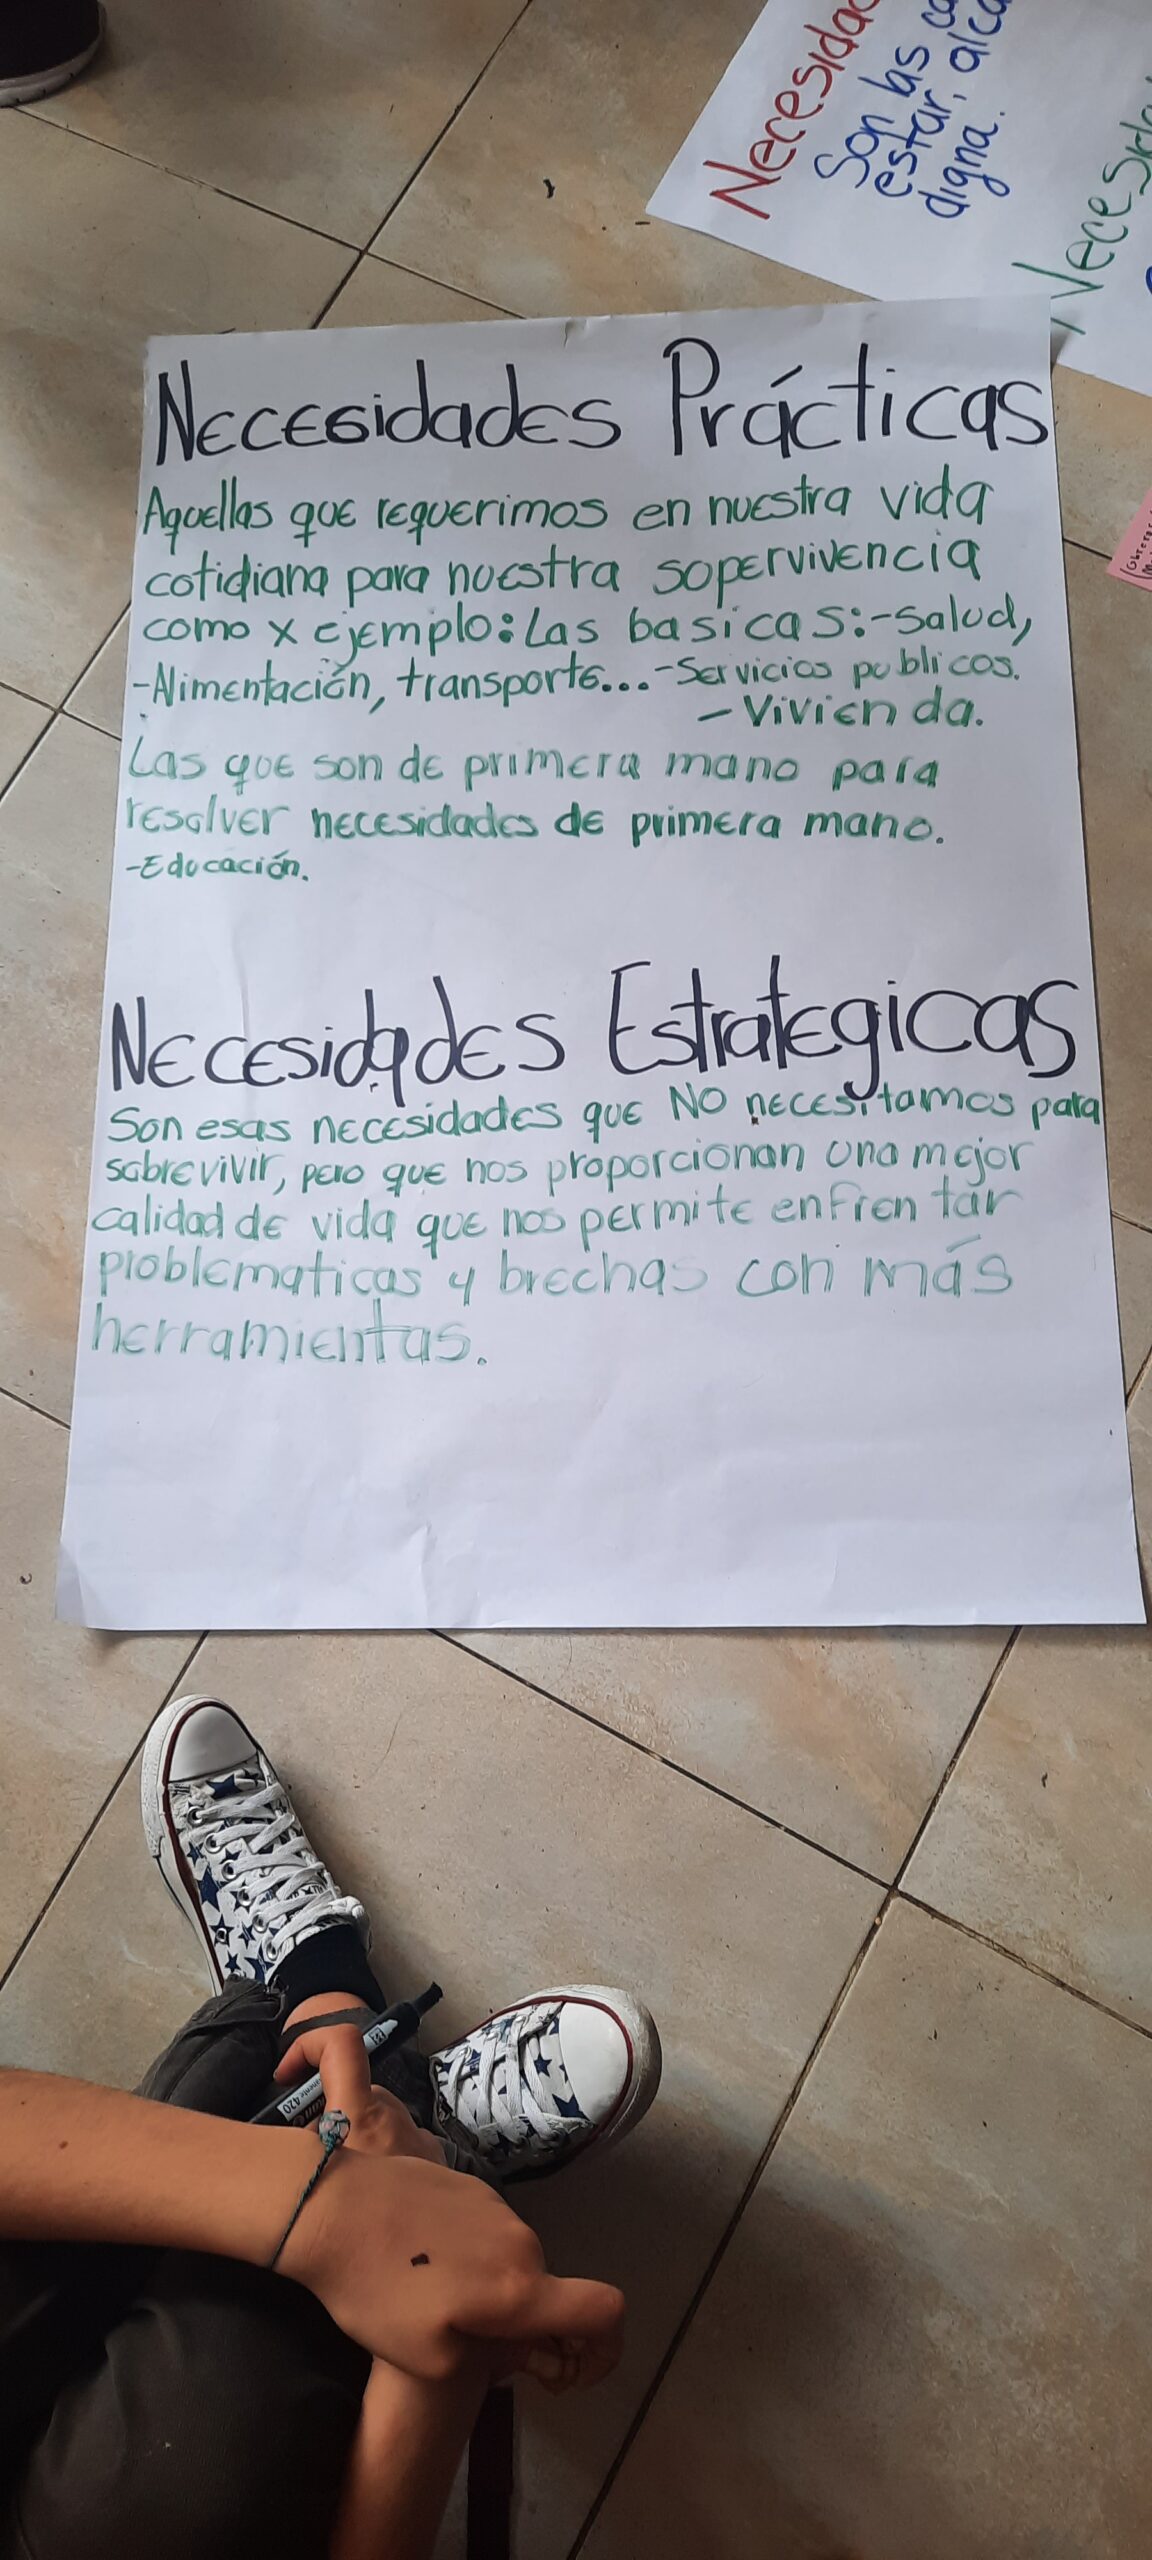 Necesidades Prácticas
Aquellas que requerimos en nuestra vida
cotidiana para nuestra sopervivencia
como x ejemplo: Las basicas:-Salud,
-Alimentación, transporte...-Servicios publicos.
-Vivienda.
Las que son de primera mano para
resolver necesidades de primera mano.
-Educación.
Necesidades Estrategicas
Son esas necesidades que NO necesitamos para
sobrevivir, pero que nos proporcionan una mejor
calidad de vida que nos permite enfrentar
problematicas y brechas con más
herramientas.
Son las
estar,
digna.
420